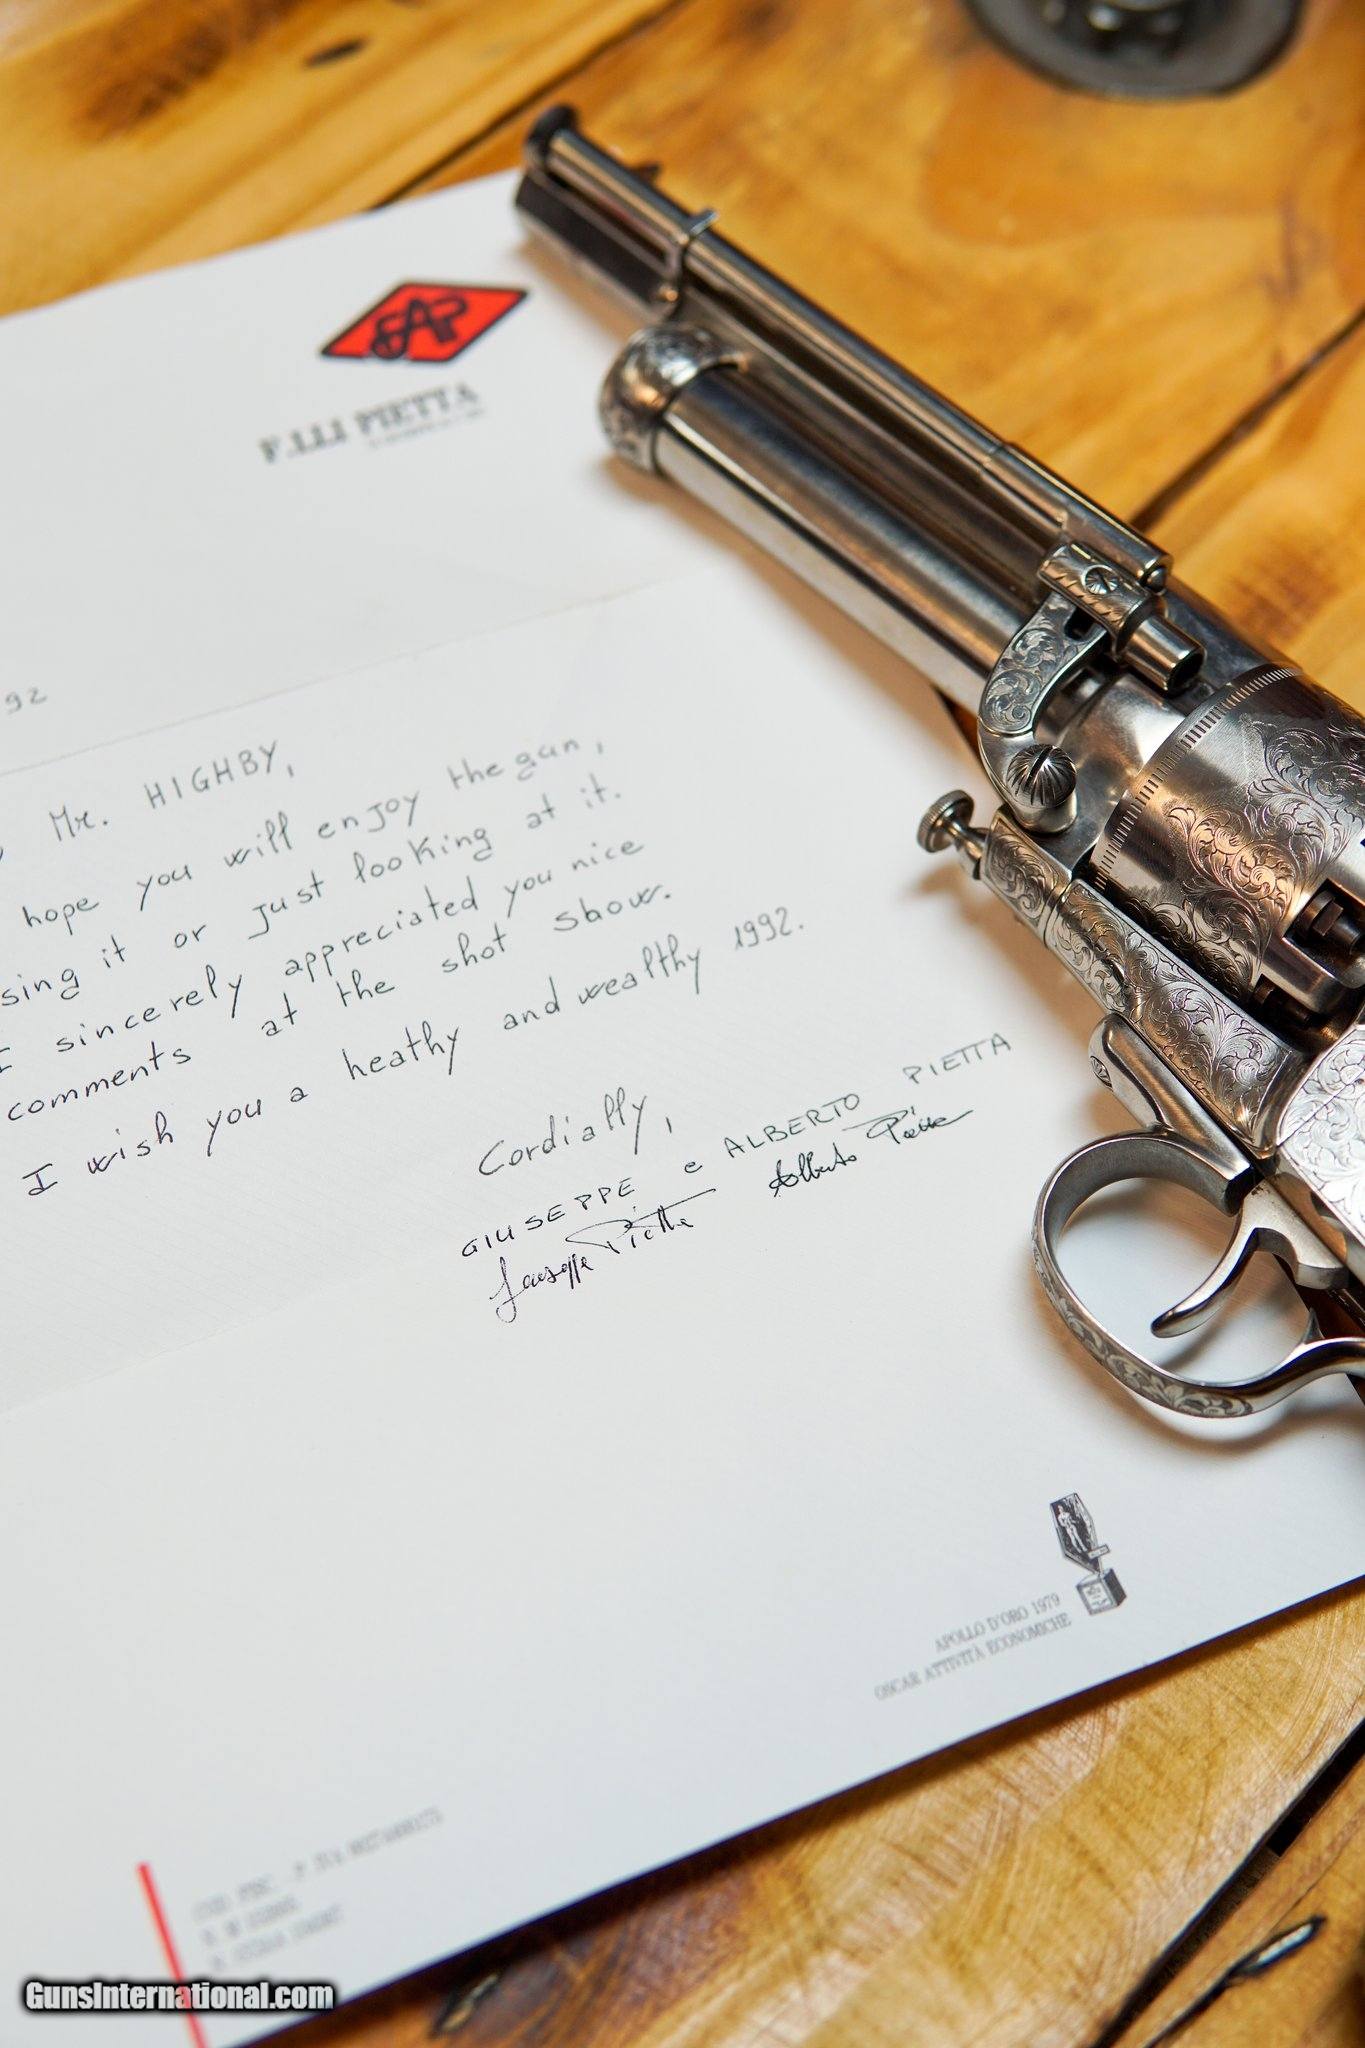 FAP
F.LLI PIETTA
92
Mr. HIGHBY,
hope you will enjoy the gun,
sing it or just looking at it.
I sincerely appreciated you nice
comments at the shot show.
I wish you a heathy and wealthy 1992.
Cordially,
GIUSEPPE e ALBERTO PIETTA
Giuseppe Pietta Alberto Pietta
APOLLO D'ORO 1979
OSCAR ATTIVITÀ ECONOMICHE
GunsInternational.com